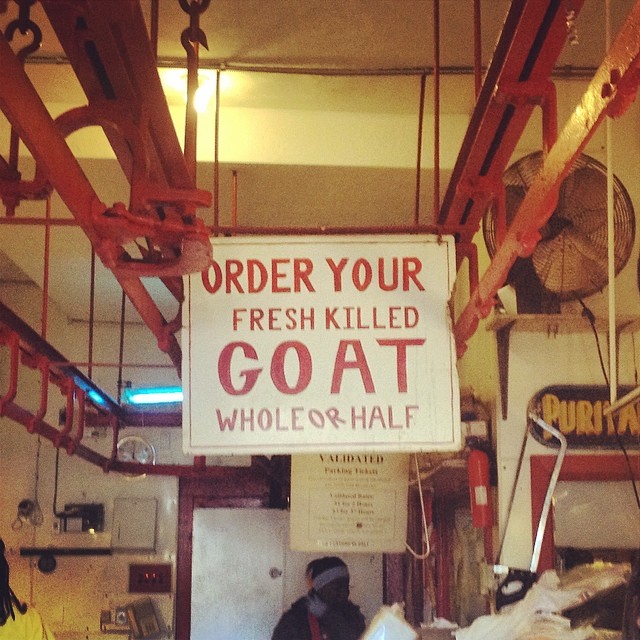 ORDER YOUR
FRESH KILLED
GOAT
WHOLE OR HALF
VALIDATED
Parking Tickets
PURITA